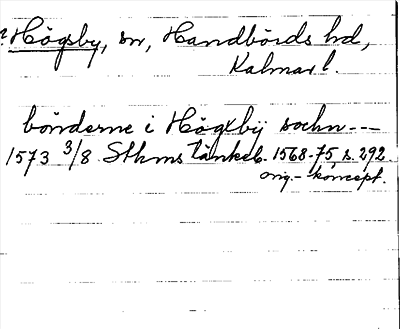 Högsby, sn, Handbörds hd,
Kalmar l.
bönderne i Högxbÿ sochn ---
1573 3/8 Sthms Tänkeb. 1568-75, s. 292
orig.- koncept.